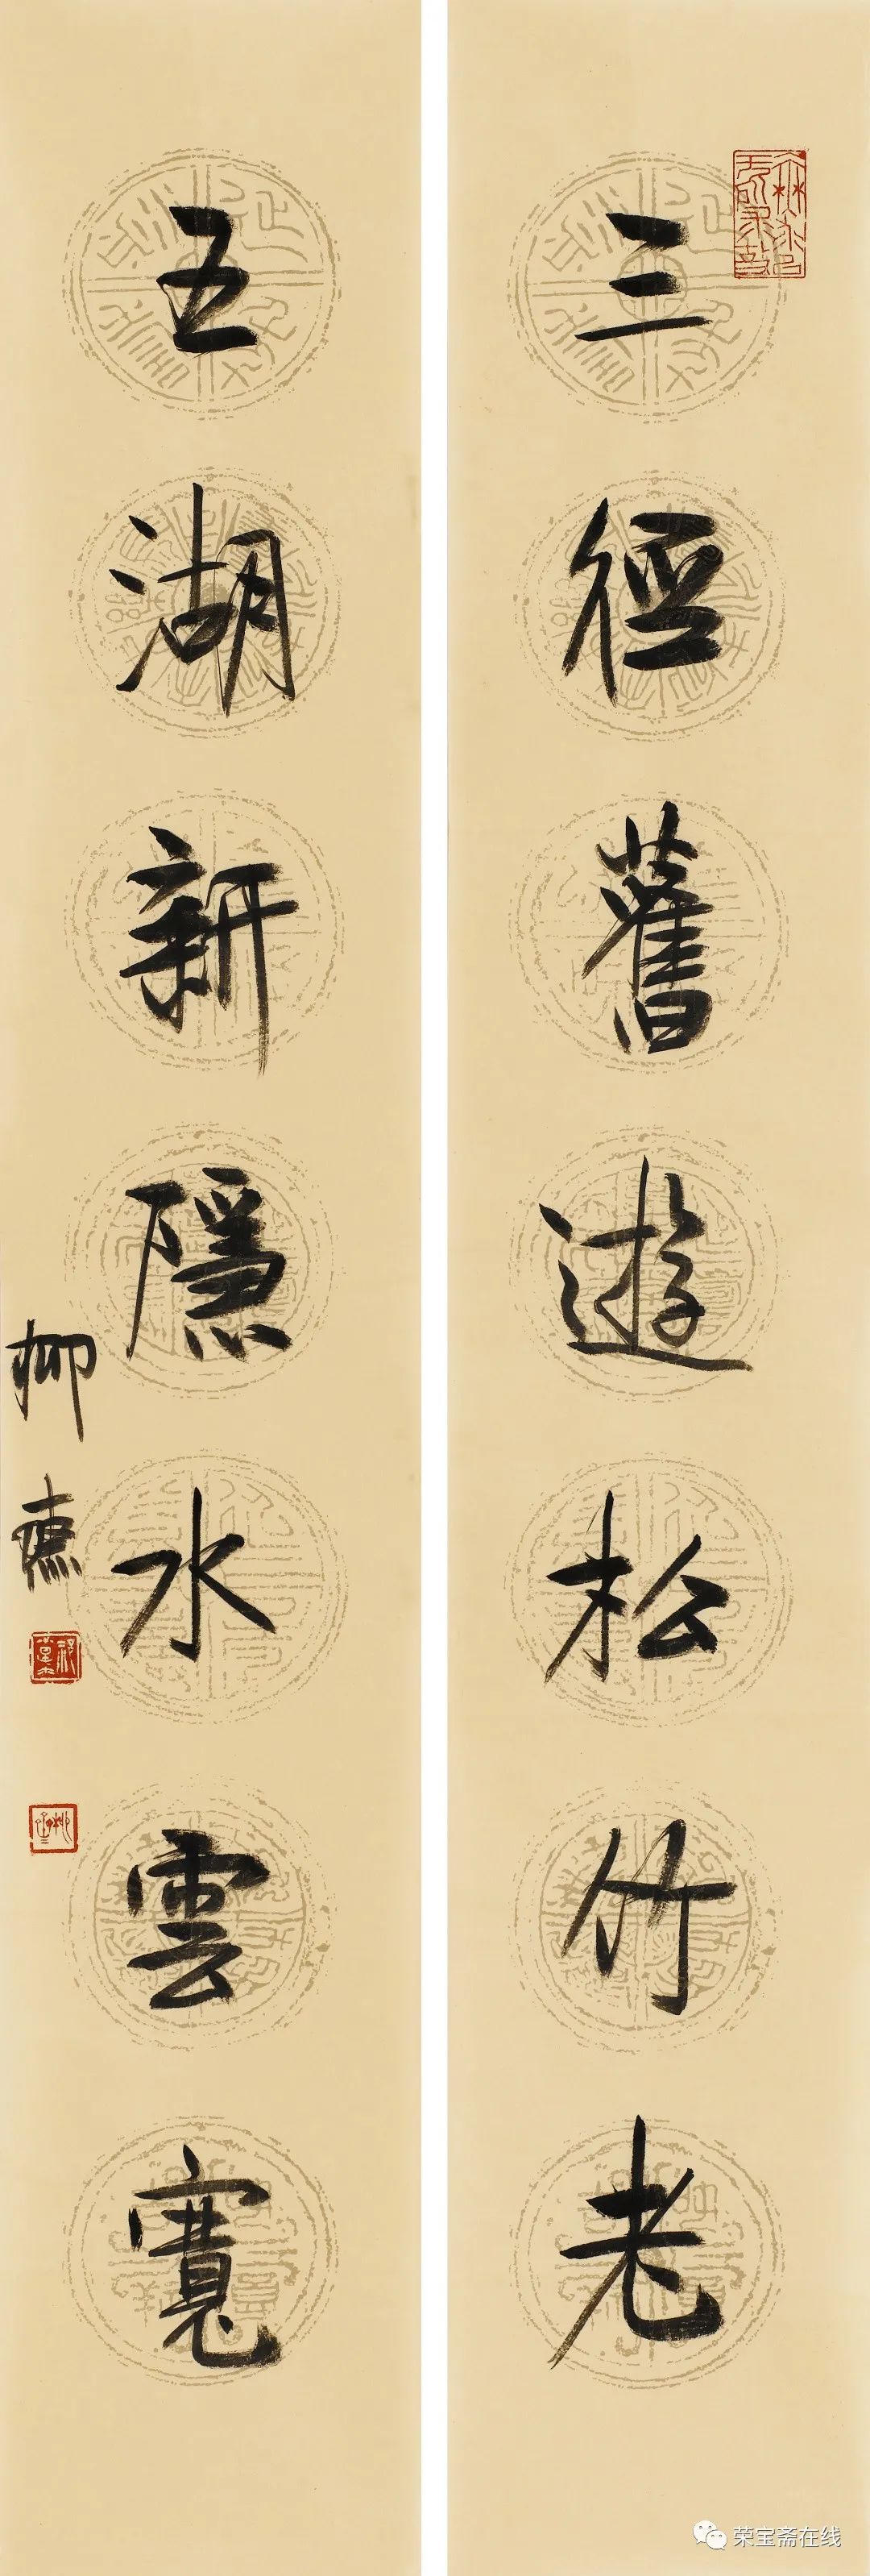 三徑舊遊松竹老
五湖新隱水雲寬
荣宝斋在线